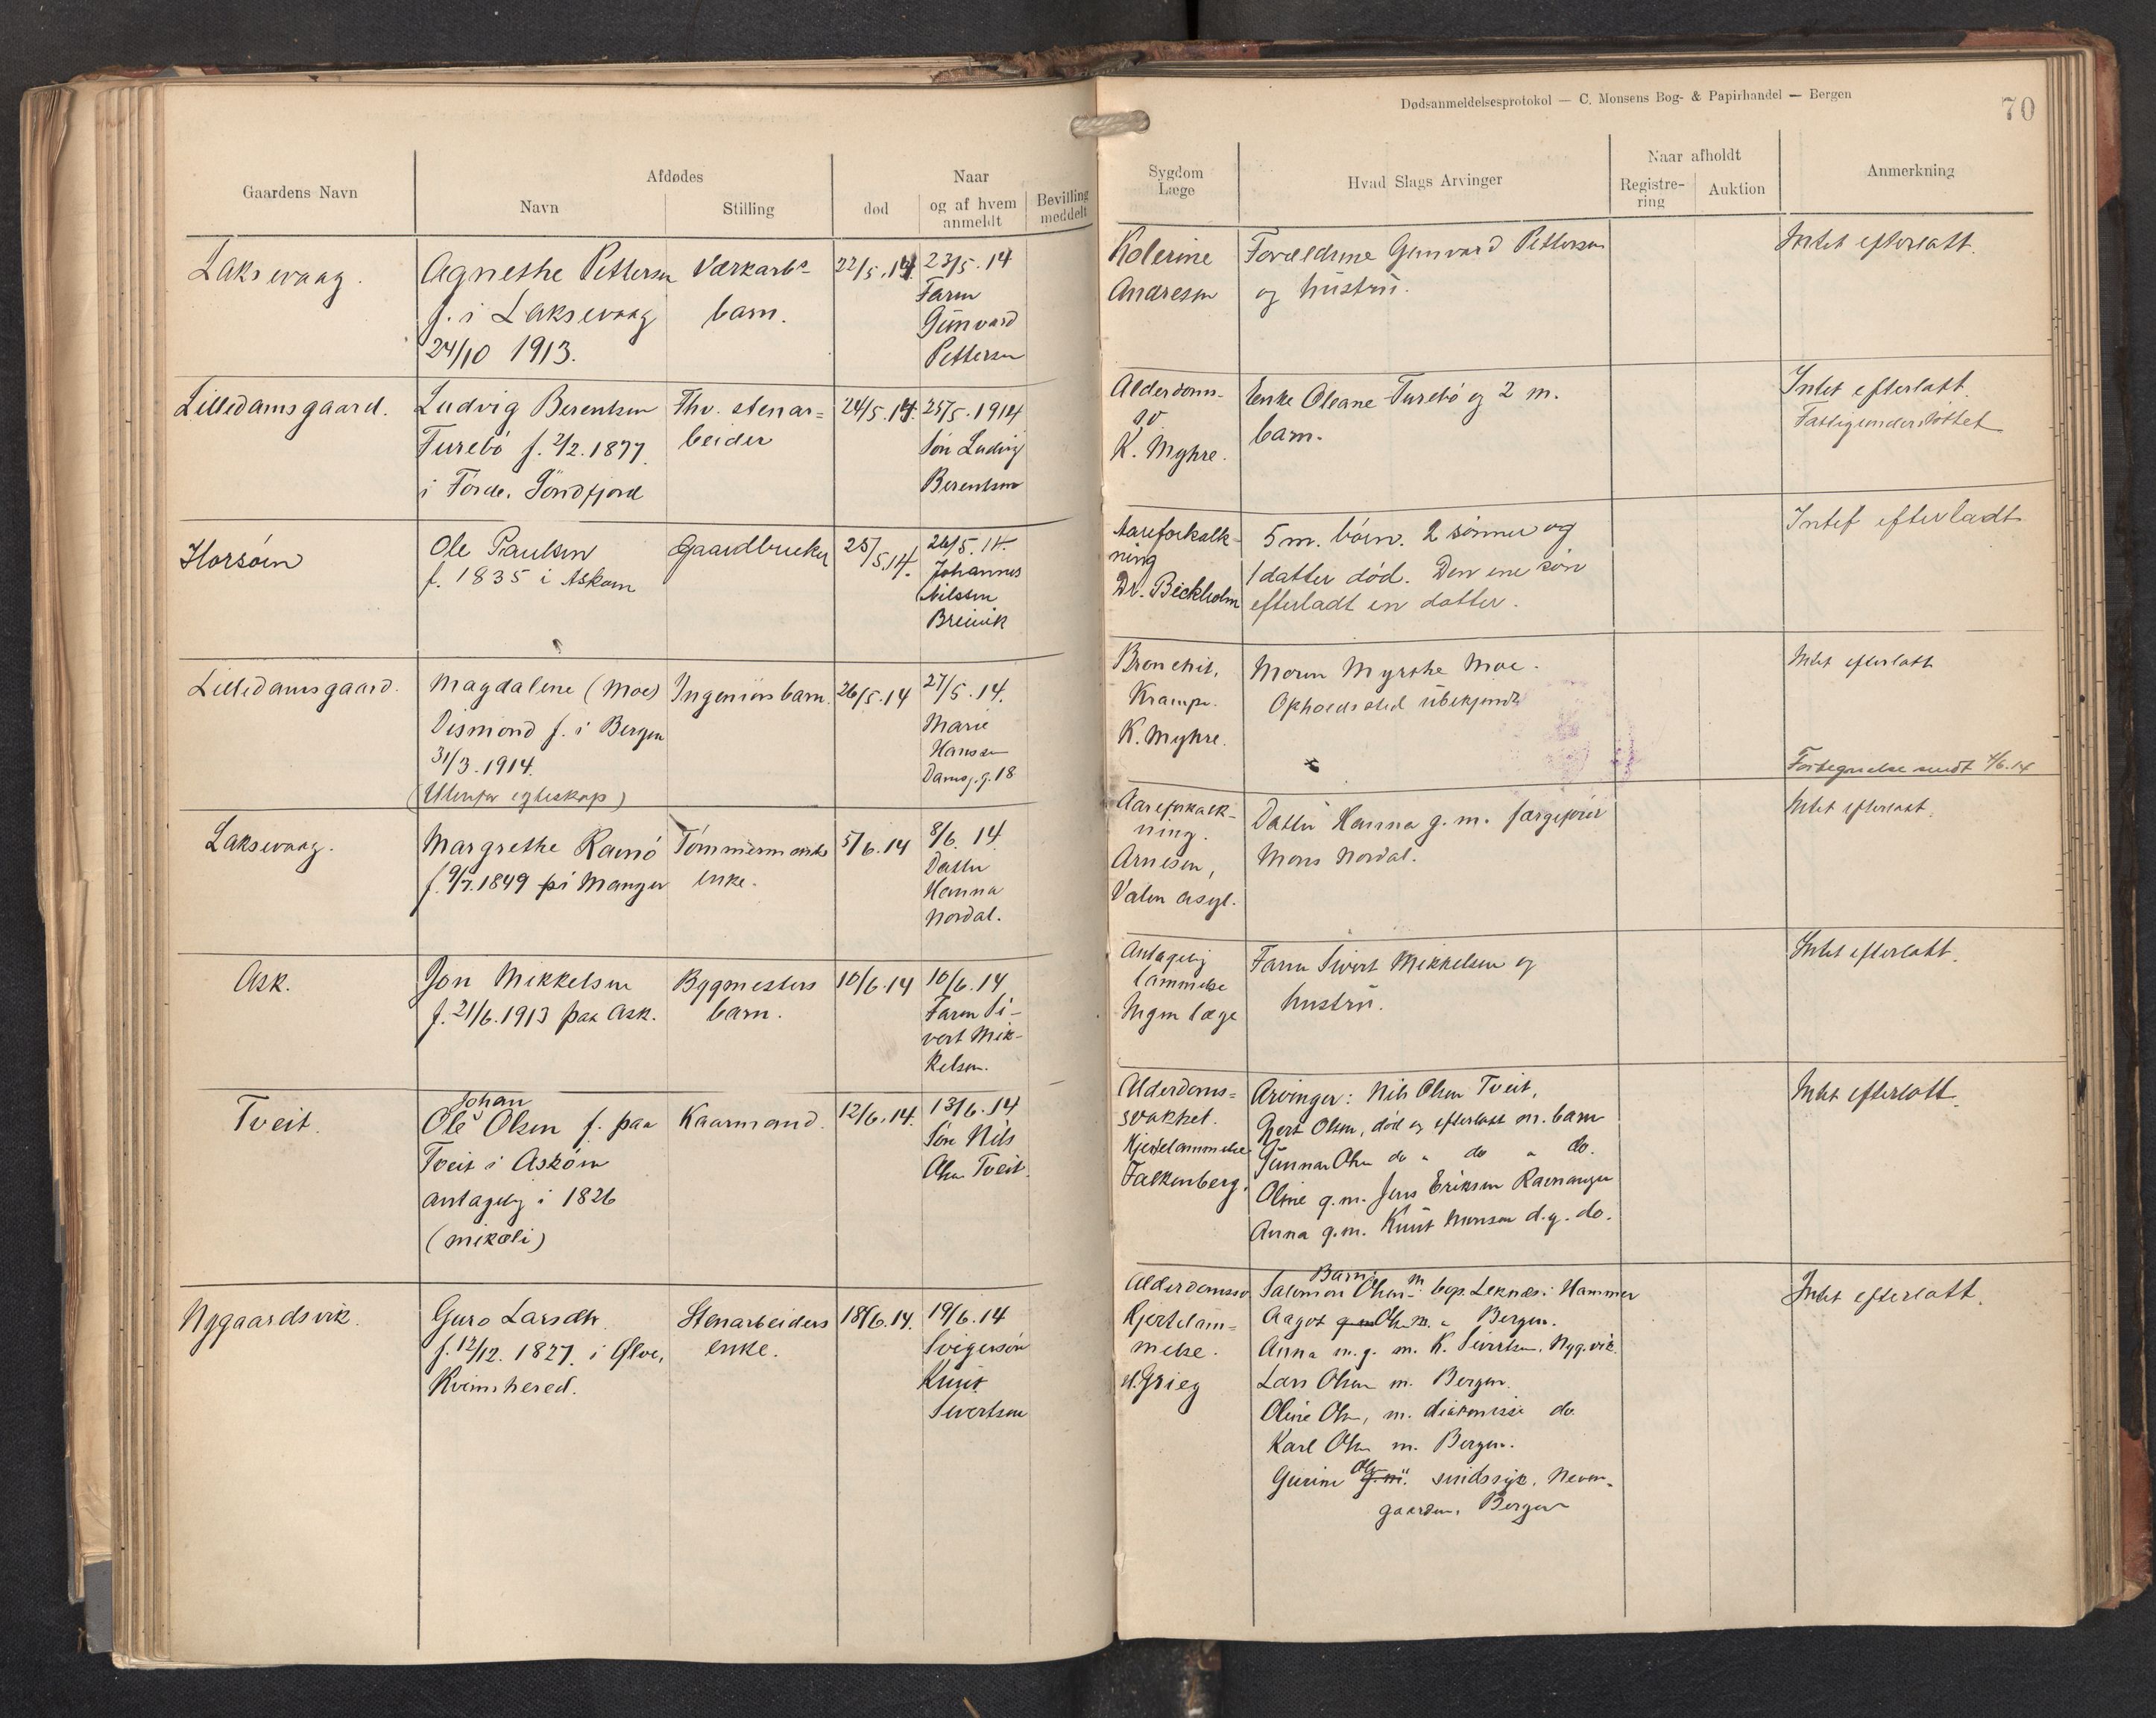 Dødsanmeldelsesprotokol — C. Monsens Bog- & Papirhandel — Bergen
70
Gaardens Navn
Afdødes
Navn
Stilling
død
Naar
og af hvem
anmeldt
Bevilling
meddelt
Sygdom
Læge
Hvad Slags Arvinger
Naar afholdt
Registre-
ring
Auktion
Anmerkning
Laksevaag.
Agnethe Pettersen
f. i Laksevaag
24/10 1913.
Værkarbs
barn.
22/5.14
23/5.14
Faren
Gunvard
Pettersen
Kolerine
Andresen
Forældrene Gunvard Pettersen
og hustru.
Intet efterlatt.
Lilledamsgaard.
Ludvig Berentsen
Turebö f. 2/2.1877.
i Förde, Söndfjord
Fhv. stenar=
beider
24/5.14.
25/5.1914
Sön Ludvig
Berentsen
Alderdoms-
sv
K. Myhre.
Enke Oleane Turebö og 2 m.
barn.
Intet efterlatt.
Fattigunderstöttet
Horsöen
Ole Paulsen
f. 1835 i Asköen
Gaardbruker
25/5.14.
26/5.14.
Johannes
Nilssen
Breivik
Aareforkalk-
ning
Dr. Bickholm
5 m. börn. 2 sönner og
1 datter död. Den ene sön
efterladt en datter.
Intet efterladt
Lilledamsgaard.
Magdalene (Moe)
Dismond f. i Bergen
31/3.1914.
(Utenfor egteskap)
Ingeniørs barn.
26/5.14
27/5.14.
Marie
Hanssen
Damsg.g. 18
Bronchit,
Krampe.
K. Myhre.
Moren Myrthe Moe.
Opholdssted ubekjendt
Intet efterlatt
Fortegnelse sendt 4/6.14
Laksevaag.
Margrethe Ramö
f. 9/7.1849 på Manger
Tömmermands
enke.
5/6.14
8/6.14.
Datter
Hanna
Nordal.
Aareforkalk-
ning.
Arnesen,
Valen asyl.
Datter Hanna g. m. færgefører
Mons Nordal.
Intet efterlatt.
Ask.
Jon Mikkelsen
f. 21/6.1913 paa Ask.
Bygmesters
barn.
10/6.14
10/6.14
Faren Si-
vert Mik-
kelsen.
Antagelig
lammelse
Ingen læge
Faren Sivert Mikkelsen og
hustru.
Intet efterlatt.
Tveit.
Johan
Ole Olsen f. paa
Tveit i Asköen
antagelig i 1826
(mikæli)
Kaarmand.
12/6.14.
13/6.14
Sön Nils
Olsen Tveit.
Alderdoms=
svakhet.
Hjertelammelse
Falkenberg.
Arvinger: Nils Olsen Tveit,
Gert Olsen, död og efterlatt m. barn
Gunnar Olsen do " do " do.
Oline g.m. Jens Eriksen Ravnanger
Anna g.m. Knut Monsen d.g. do.
Intet efterlatt.
Nygaardsvik.
Guro Larsdtr.
f. 12/12. 1827. i Ølve,
Kvinnhered.
Stenarbeiders
enke.
18/6.14.
19/6.14
Svigersön
Knut
Sivertsen
Alderdomssv
Hjertelam=
melse.
d. Grieg
Barn:
Salomon Olsen m. bop. Leknes i Hammer
Aagot Olsen m. " Bergen.
Anna m.g. m. K. Sivertsen, Nyg.vik.
Lars Olsen m. Bergen.
Oline Olsen, m. diakonisse do.
Karl Olsen m. Bergen.
Gurine Olsen sindssyk, Neven-
gaarden, Bergen
Intet efterlatt.